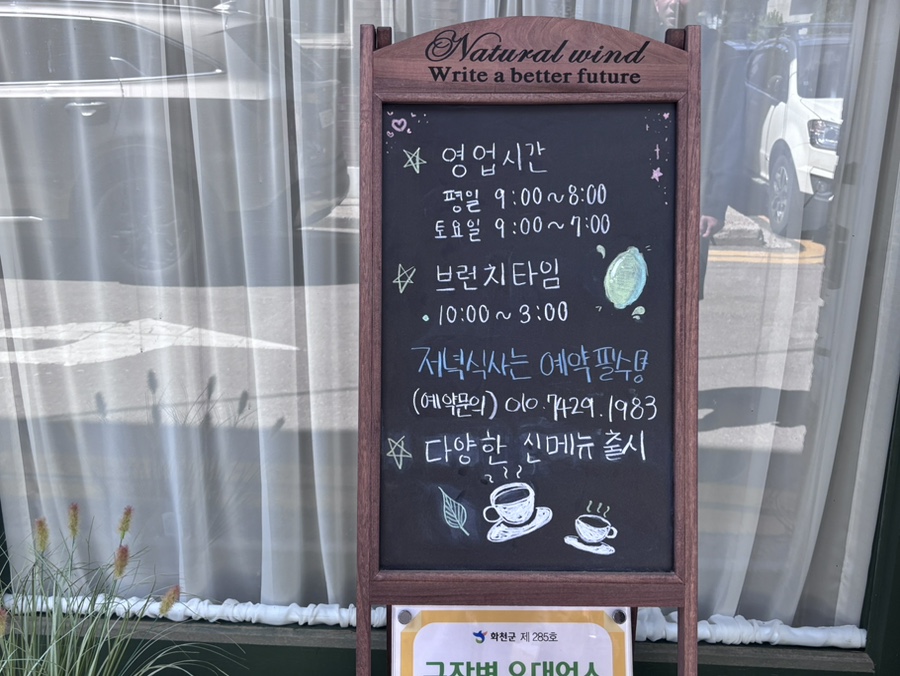 Natural wind
Write a better future
영업시간
평일 9:00~8:00
토요일 9:00~7:00
브런치타임
10:00~3:00
저녁식사는 예약필수용
(예약문의) 010.7429.1983
다양한 신메뉴 출시
화천군 제 285호
군장병 우대업소